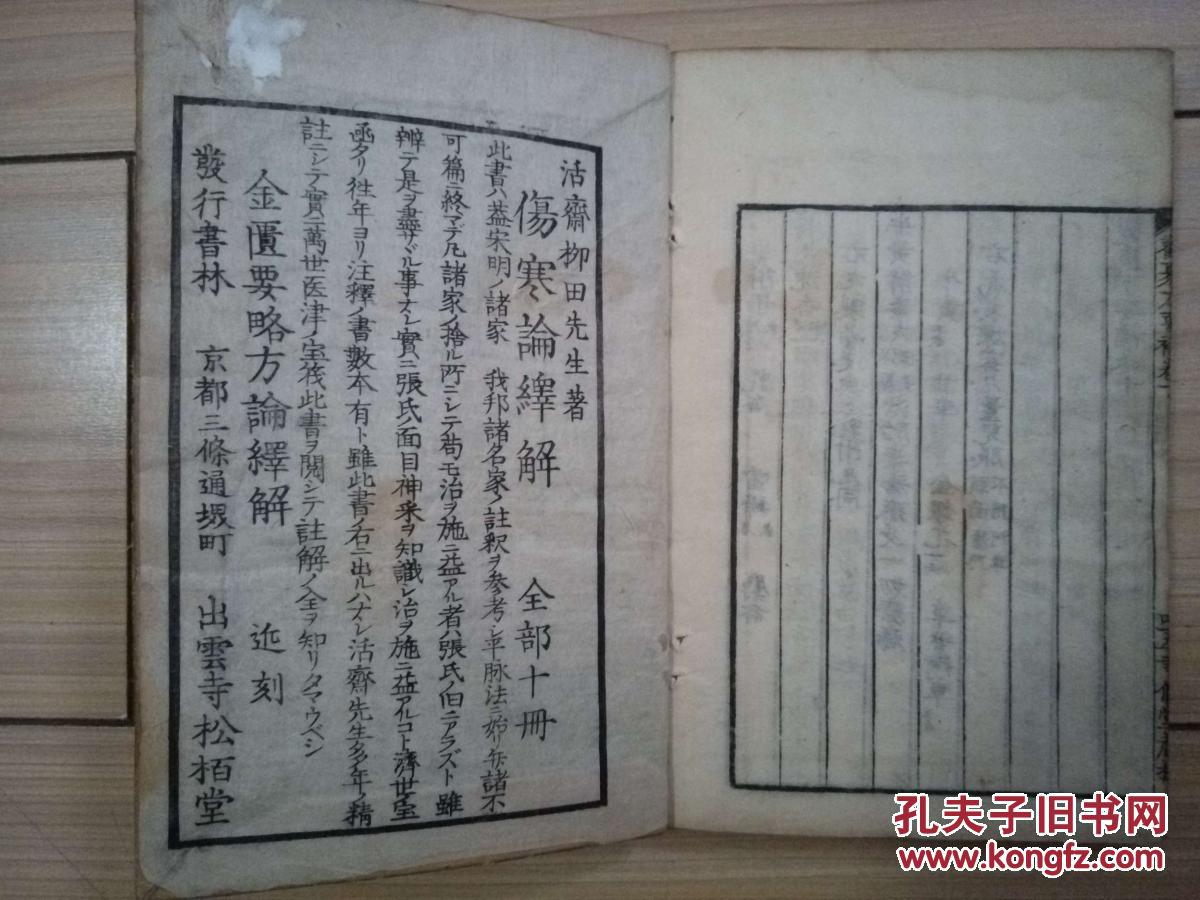 活齋栁田先生著
傷寒論繹解　全部十冊
此書ハ蓋宋明ノ諸家　我邦諸名家ノ註釈ヲ参考シ平脉法ニ始リ矢諸不
可篇ニ終マデ凡諸家ノ捨ル所ニシテ苟モ治ヲ施ニ益アル者ハ張氏ノ旧ニアラズト雖
辨テ是ヲ盡サヾル事ナシ實ニ張氏ノ面目神采ヲ知識シ治ヲ施ニ益アルコト濟世宝
函タリ徃年ヨリ注釋ノ書數本有ト雖此書ノ右ニ出ルハナシ活齋先生多年ノ精
註ニシテ實ニ萬世医津ノ宝筏此書ヲ閲シテ註解ノ全ヲ知リタマウベシ
金匱要略方論繹解　近刻
發行書林　京都三條通堺町　出雲寺松栢堂
孔夫子旧书网
www.kongfz.com